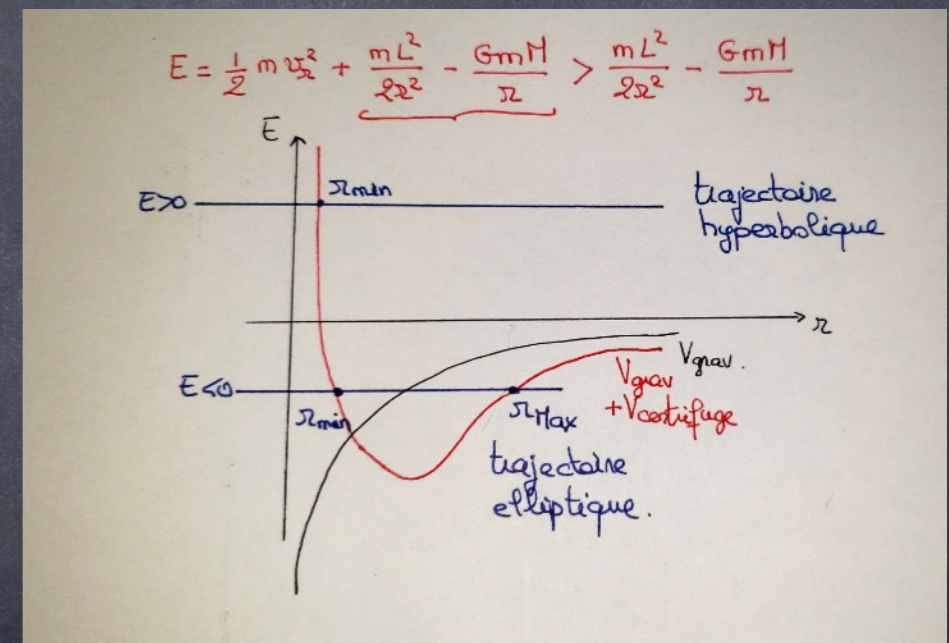 E = 1/2 m v_r² + mL²/2r² - GmM/r > mL²/2r² - GmM/r
E
r_min
trajectoire
hyperbolique
E>0
r
V_grav.
E<0
V_grav
+V_centrifuge
r_min
r_Max
trajectoire
elliptique.